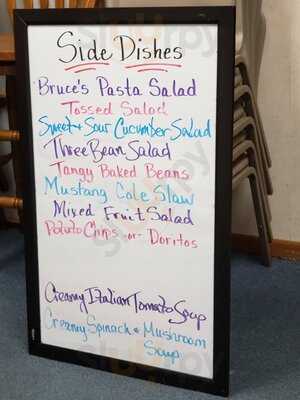 Side Dishes
Bruce's Pasta Salad
Tossed Salad
Sweet & Sour Cucumber Salad
Three Bean Salad
Tangy Baked Beans
Mustang Cole Slaw
Mixed Fruit Salad
Potato Chips or Doritos
Creamy Italian Tomato Soup
Creamy Spinach & Mushroom
Soup